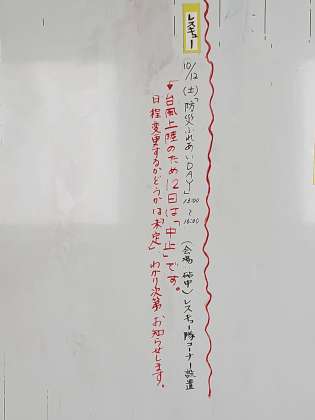 レスキュー
10/12(土)「防災ふれあいDAY」13:00～16:00 (会場 砧中) レスキュー隊コーナー設置
台風上陸のため12日は「中止」です。
日程変更するかどうかは「未定」 わかり次第 お知らせします。